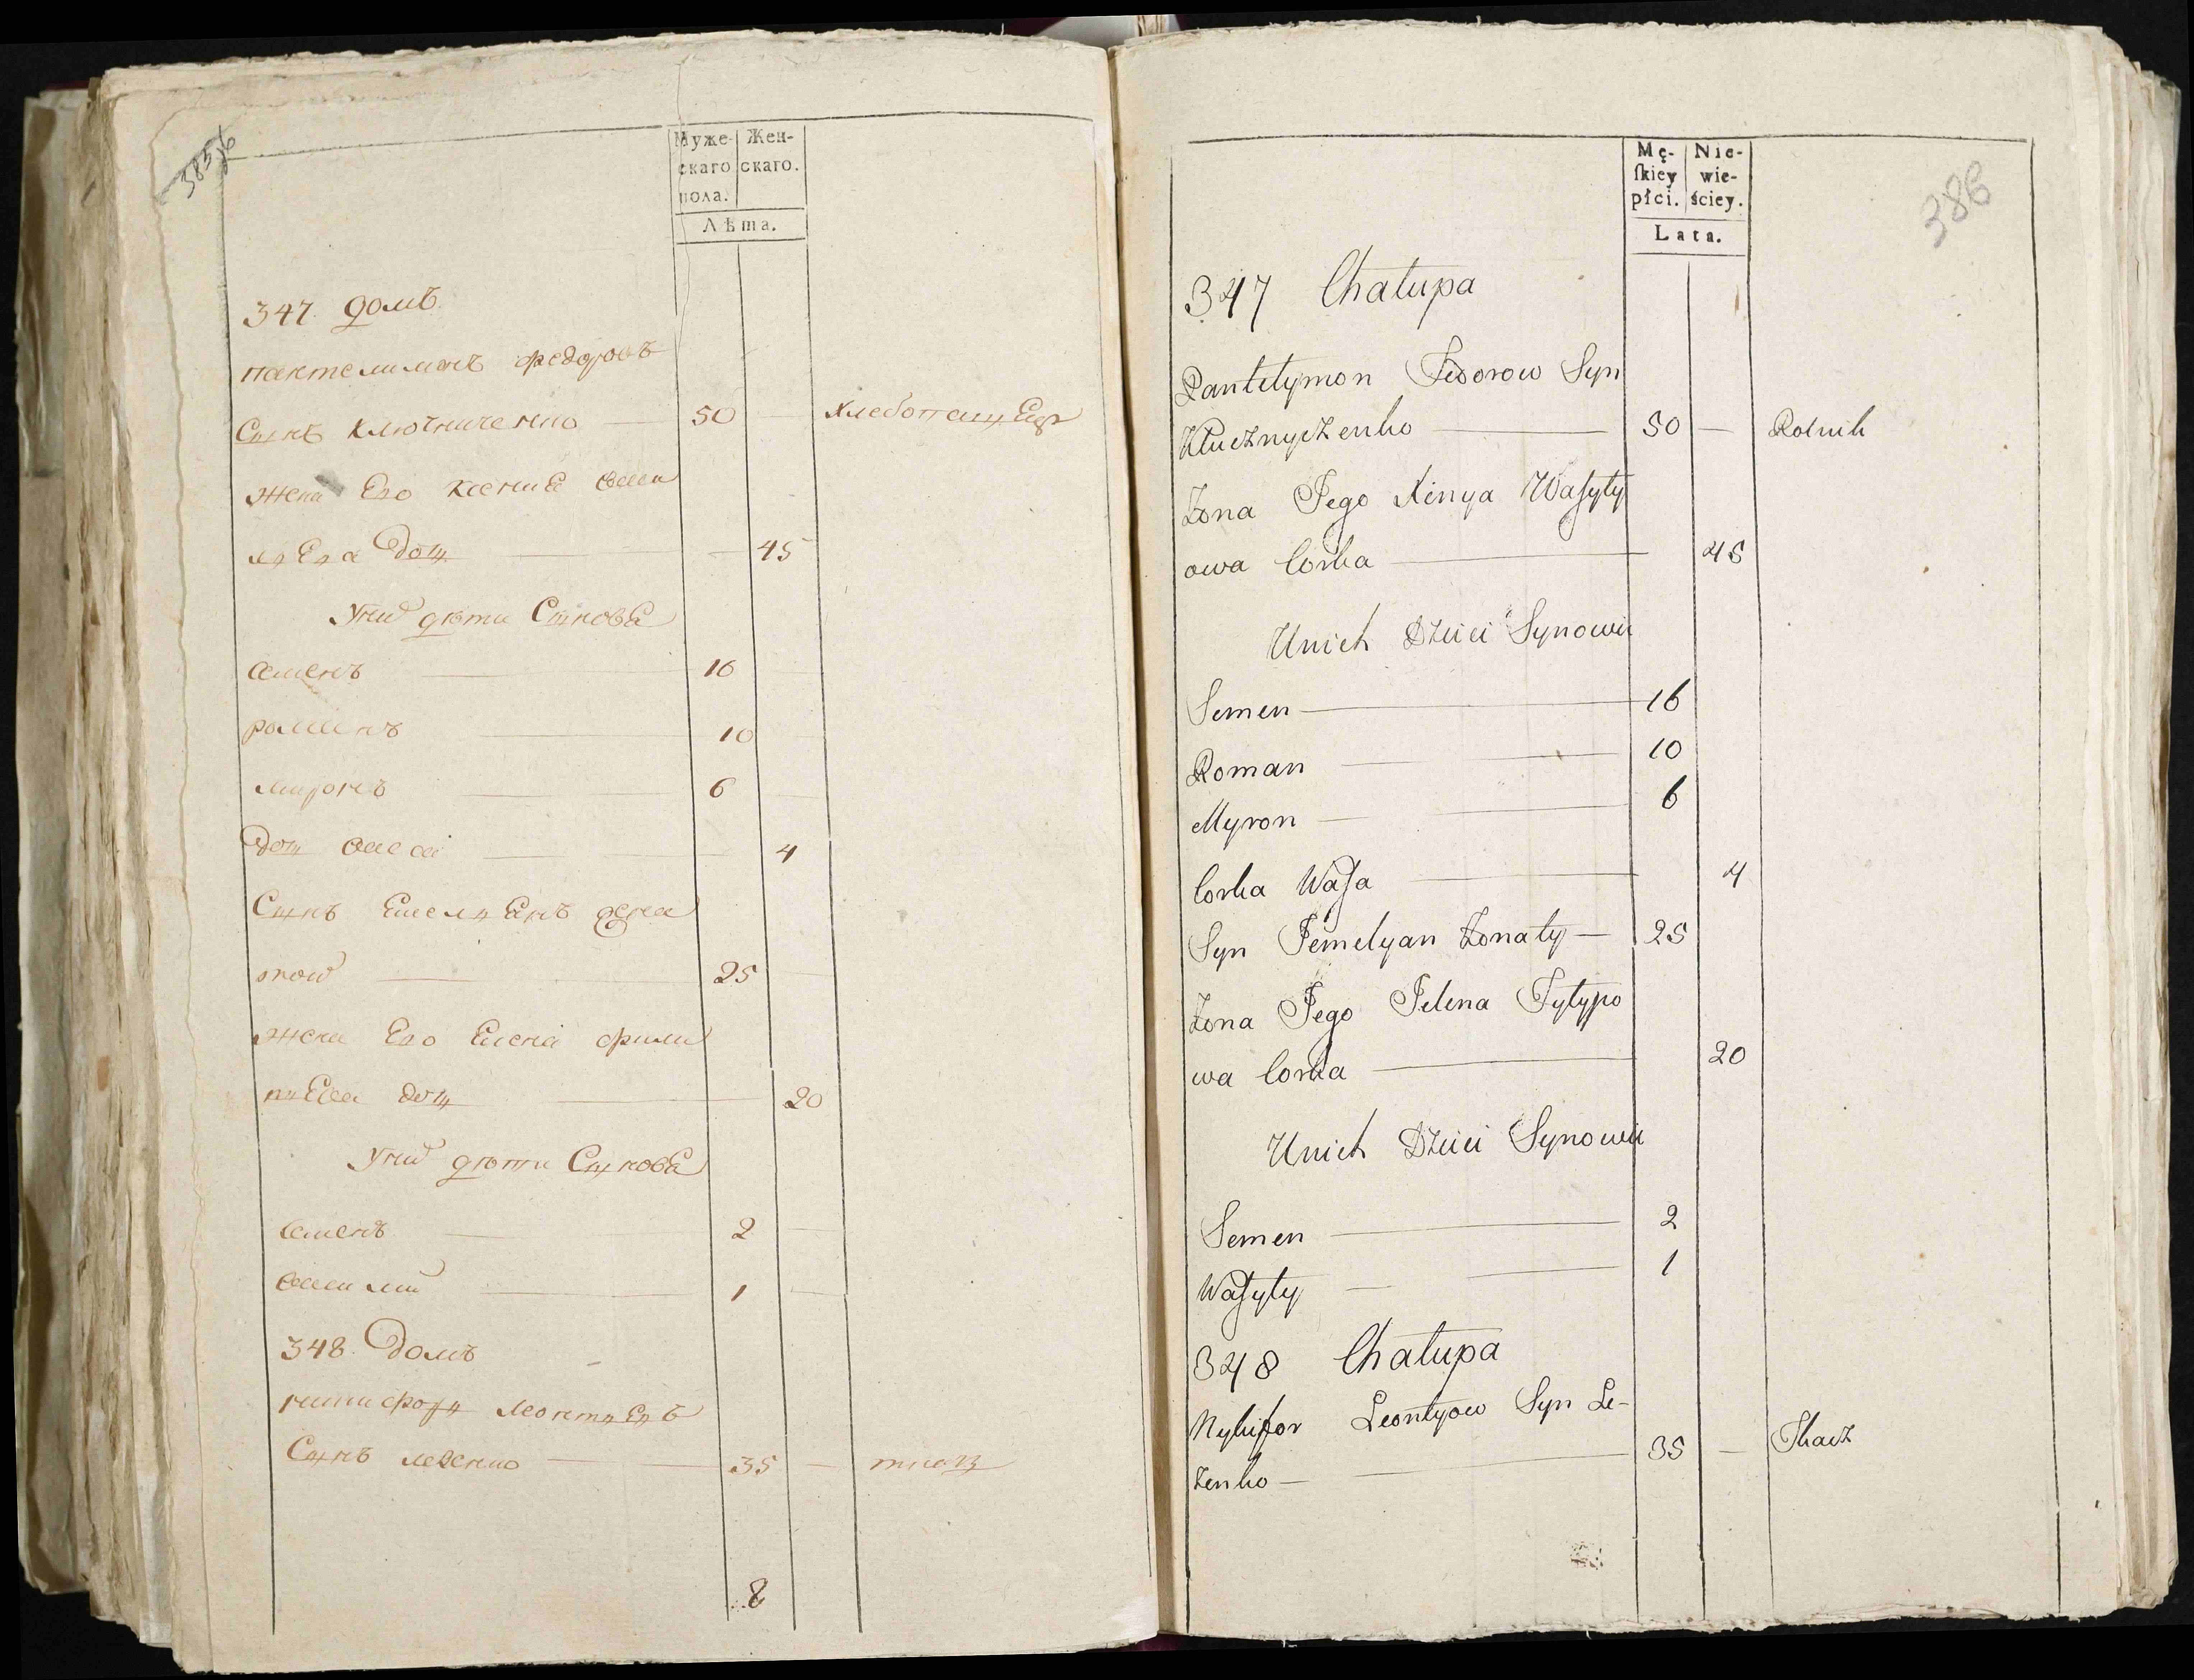 385
Муже-
скаго
пола.
Жен-
скаго.
Лѣта.
347. домъ
пантелимонъ федоровъ
Сынъ ключниченко 50 хлебопашец
жена Его ксения васи
лева дощ 45
У них дѣти Сынова
семенъ 16
романъ 10
миронъ 6
дощ васса 4
Сынъ Емелянъ жена
той 25
жена Его Елена фили
пова дощ 20
У них дѣти Сынова
семенъ 2
василий 1
348. домъ
никифоръ леонтьевъ
Сынъ леженко 35 ткачъ
8
386
Mę-
ſkiey
płci.
Nie-
wie-
ściey.
Lata.
347 Chałupa
Pantelymon Fedorow Syn
Kłucznyczenko 50 Rolnik
Żona Jego Xenya Waſyly
owa Corka 45
Unich Dzieci Synowie
Semen 16
Roman 10
Myron 6
Corka Waſa 4
Syn Jemelyan Żonaty 25
Żona Jego Jelena Fylypo
wa Corka 20
Unich Dzieci Synowie
Semen 2
Waſyly 1
348 Chałupa
Nykifor Leontyow Syn Le-
żenko 35 Tkacz